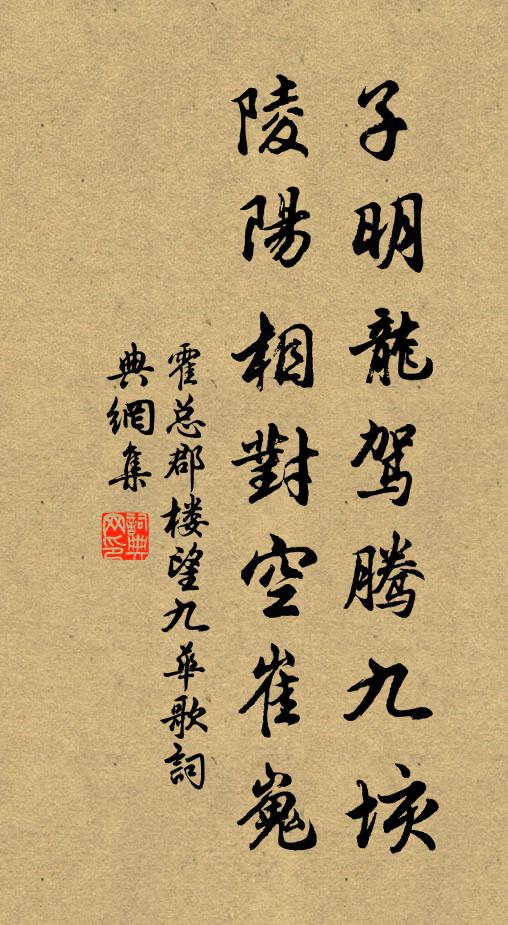 子明龍驾騰九垓
陵陽相對空崔嵬
霍总郡楼望九華歌詞
典網集
詞典網印